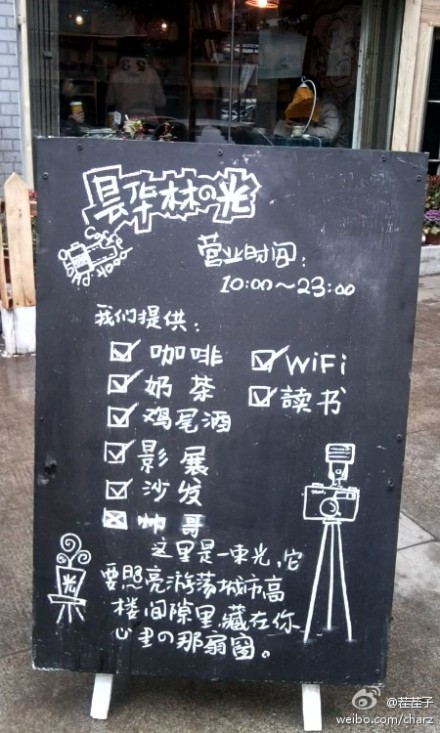 昙华林の光
营业时间:
10:00~23:00
我们提供:
咖啡
WiFi
奶茶
读书
鸡尾酒
影展
沙发
帅哥
这里是一束光,它
要照亮游荡城市高
楼间隙里,藏在你
心里の那扇窗。
光
@茬茬子
weibo.com/charz